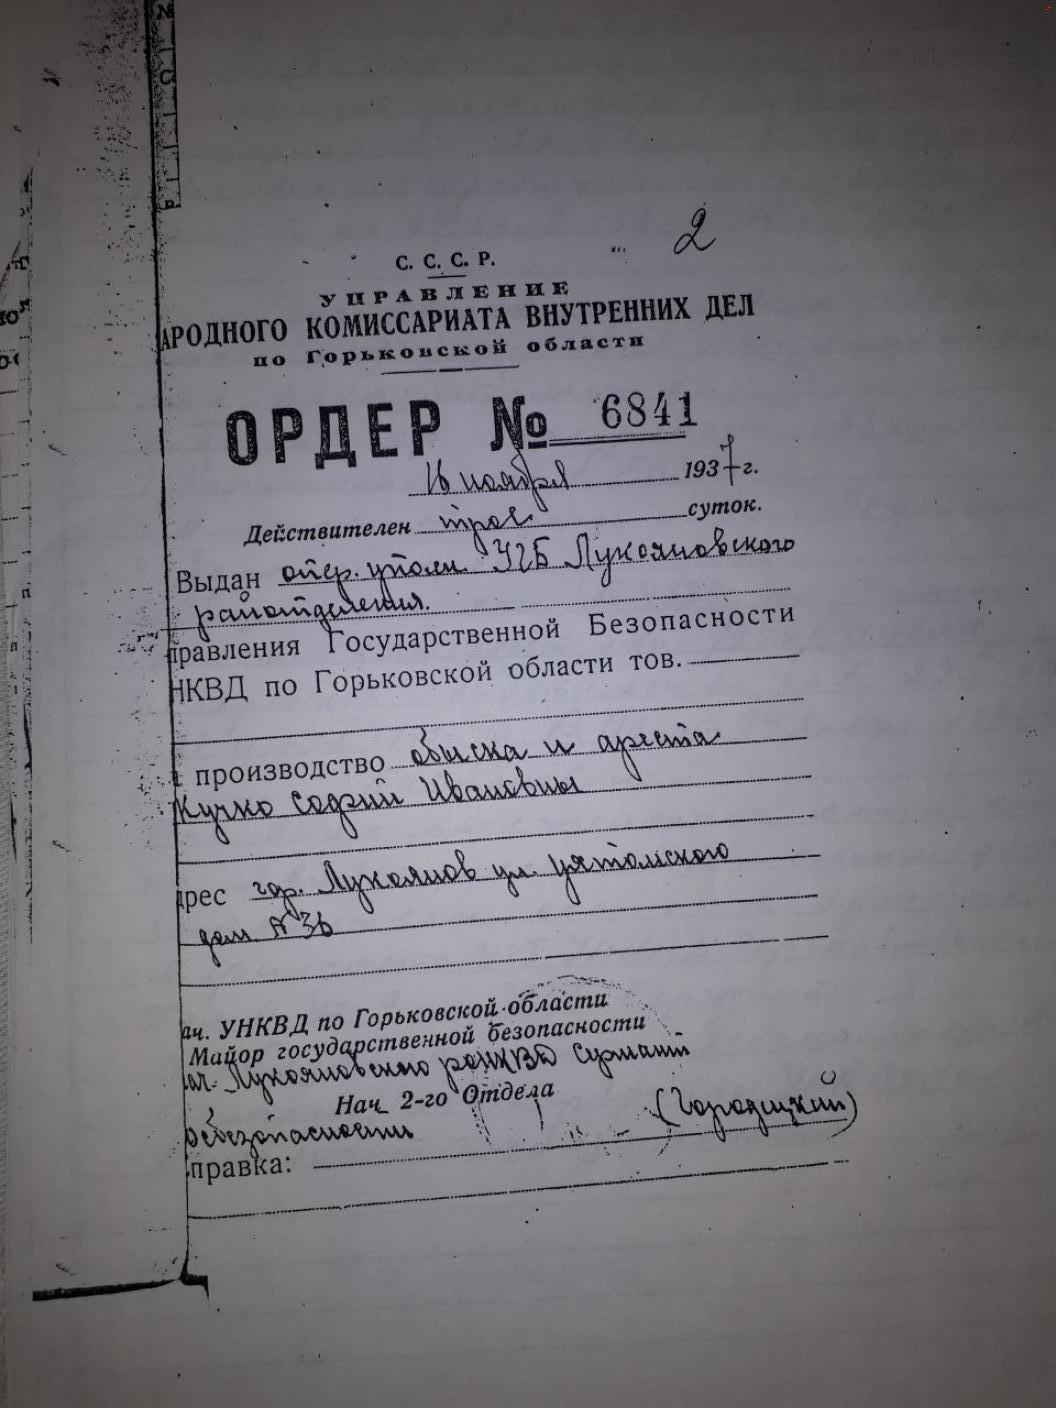 2
С. С. С. Р.
УПРАВЛЕНИЕ
АРОДНОГО КОМИССАРИАТА ВНУТРЕННИХ ДЕЛ
по Горьковской области
ОРДЕР № 6841
16 ноября 1937 г.
Действителен трое суток.
Выдан опер. уполн УГБ Лукояновского
райотделения.
правления Государственной Безопасности
НКВД по Горьковской области тов.
производство обыска и ареста
Кучко Софии Ивановны
дрес гор. Лукоянов ул.
дом №36
ач. УНКВД по Горьковской области
Майор государственной безопасности
ач. Лукояновского роНКВД сержант
Нач. 2-го Отдела
безопасности (Городецкий)
правка: